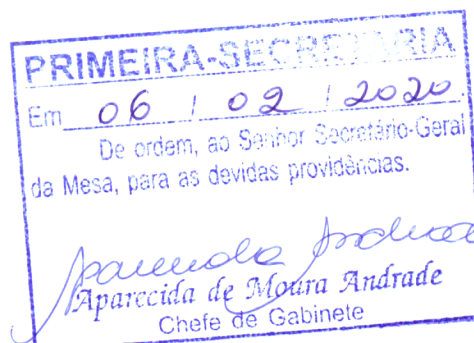 PRIMEIRA-SECRETARIA
Em 06 / 02 / 2020
De ordem, ao Senhor Secretário-Geral
da Mesa, para as devidas providências.
Aparecida Andrade
Aparecida de Moura Andrade
Chefe de Gabinete